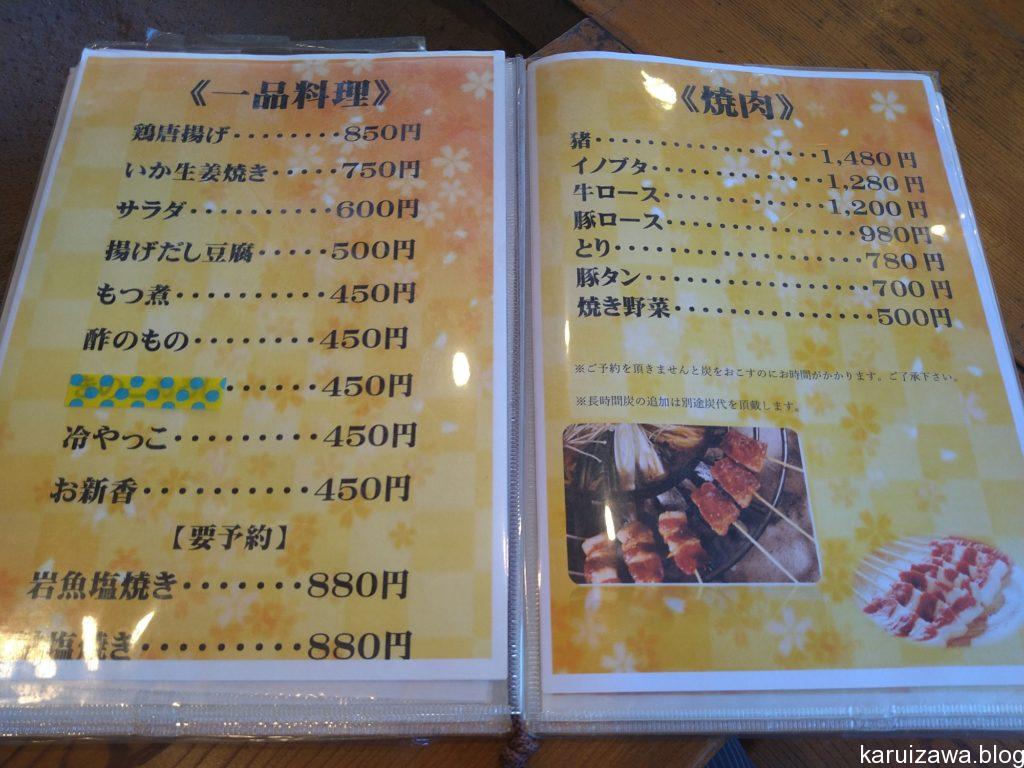 《一品料理》
鶏唐揚げ········850円
いか生姜焼き·····750円
サラダ··········600円
揚げだし豆腐·····500円
もつ煮··········450円
酢のもの········450円
······450円
冷やっこ·········450円
お新香··········450円
【要予約】
岩魚塩焼き·······880円
塩焼き·········880円
《焼肉》
猪··················1,480円
イノブタ··············1,280円
牛ロース·············1,200円
豚ロース···············980円
とり····················780円
豚タン·················700円
焼き野菜···············500円
※ご予約を頂きませんと炭をおこすのにお時間がかかります。ご了承下さい。
※長時間炭の追加は別途炭代を頂戴します。
karuizawa.blog